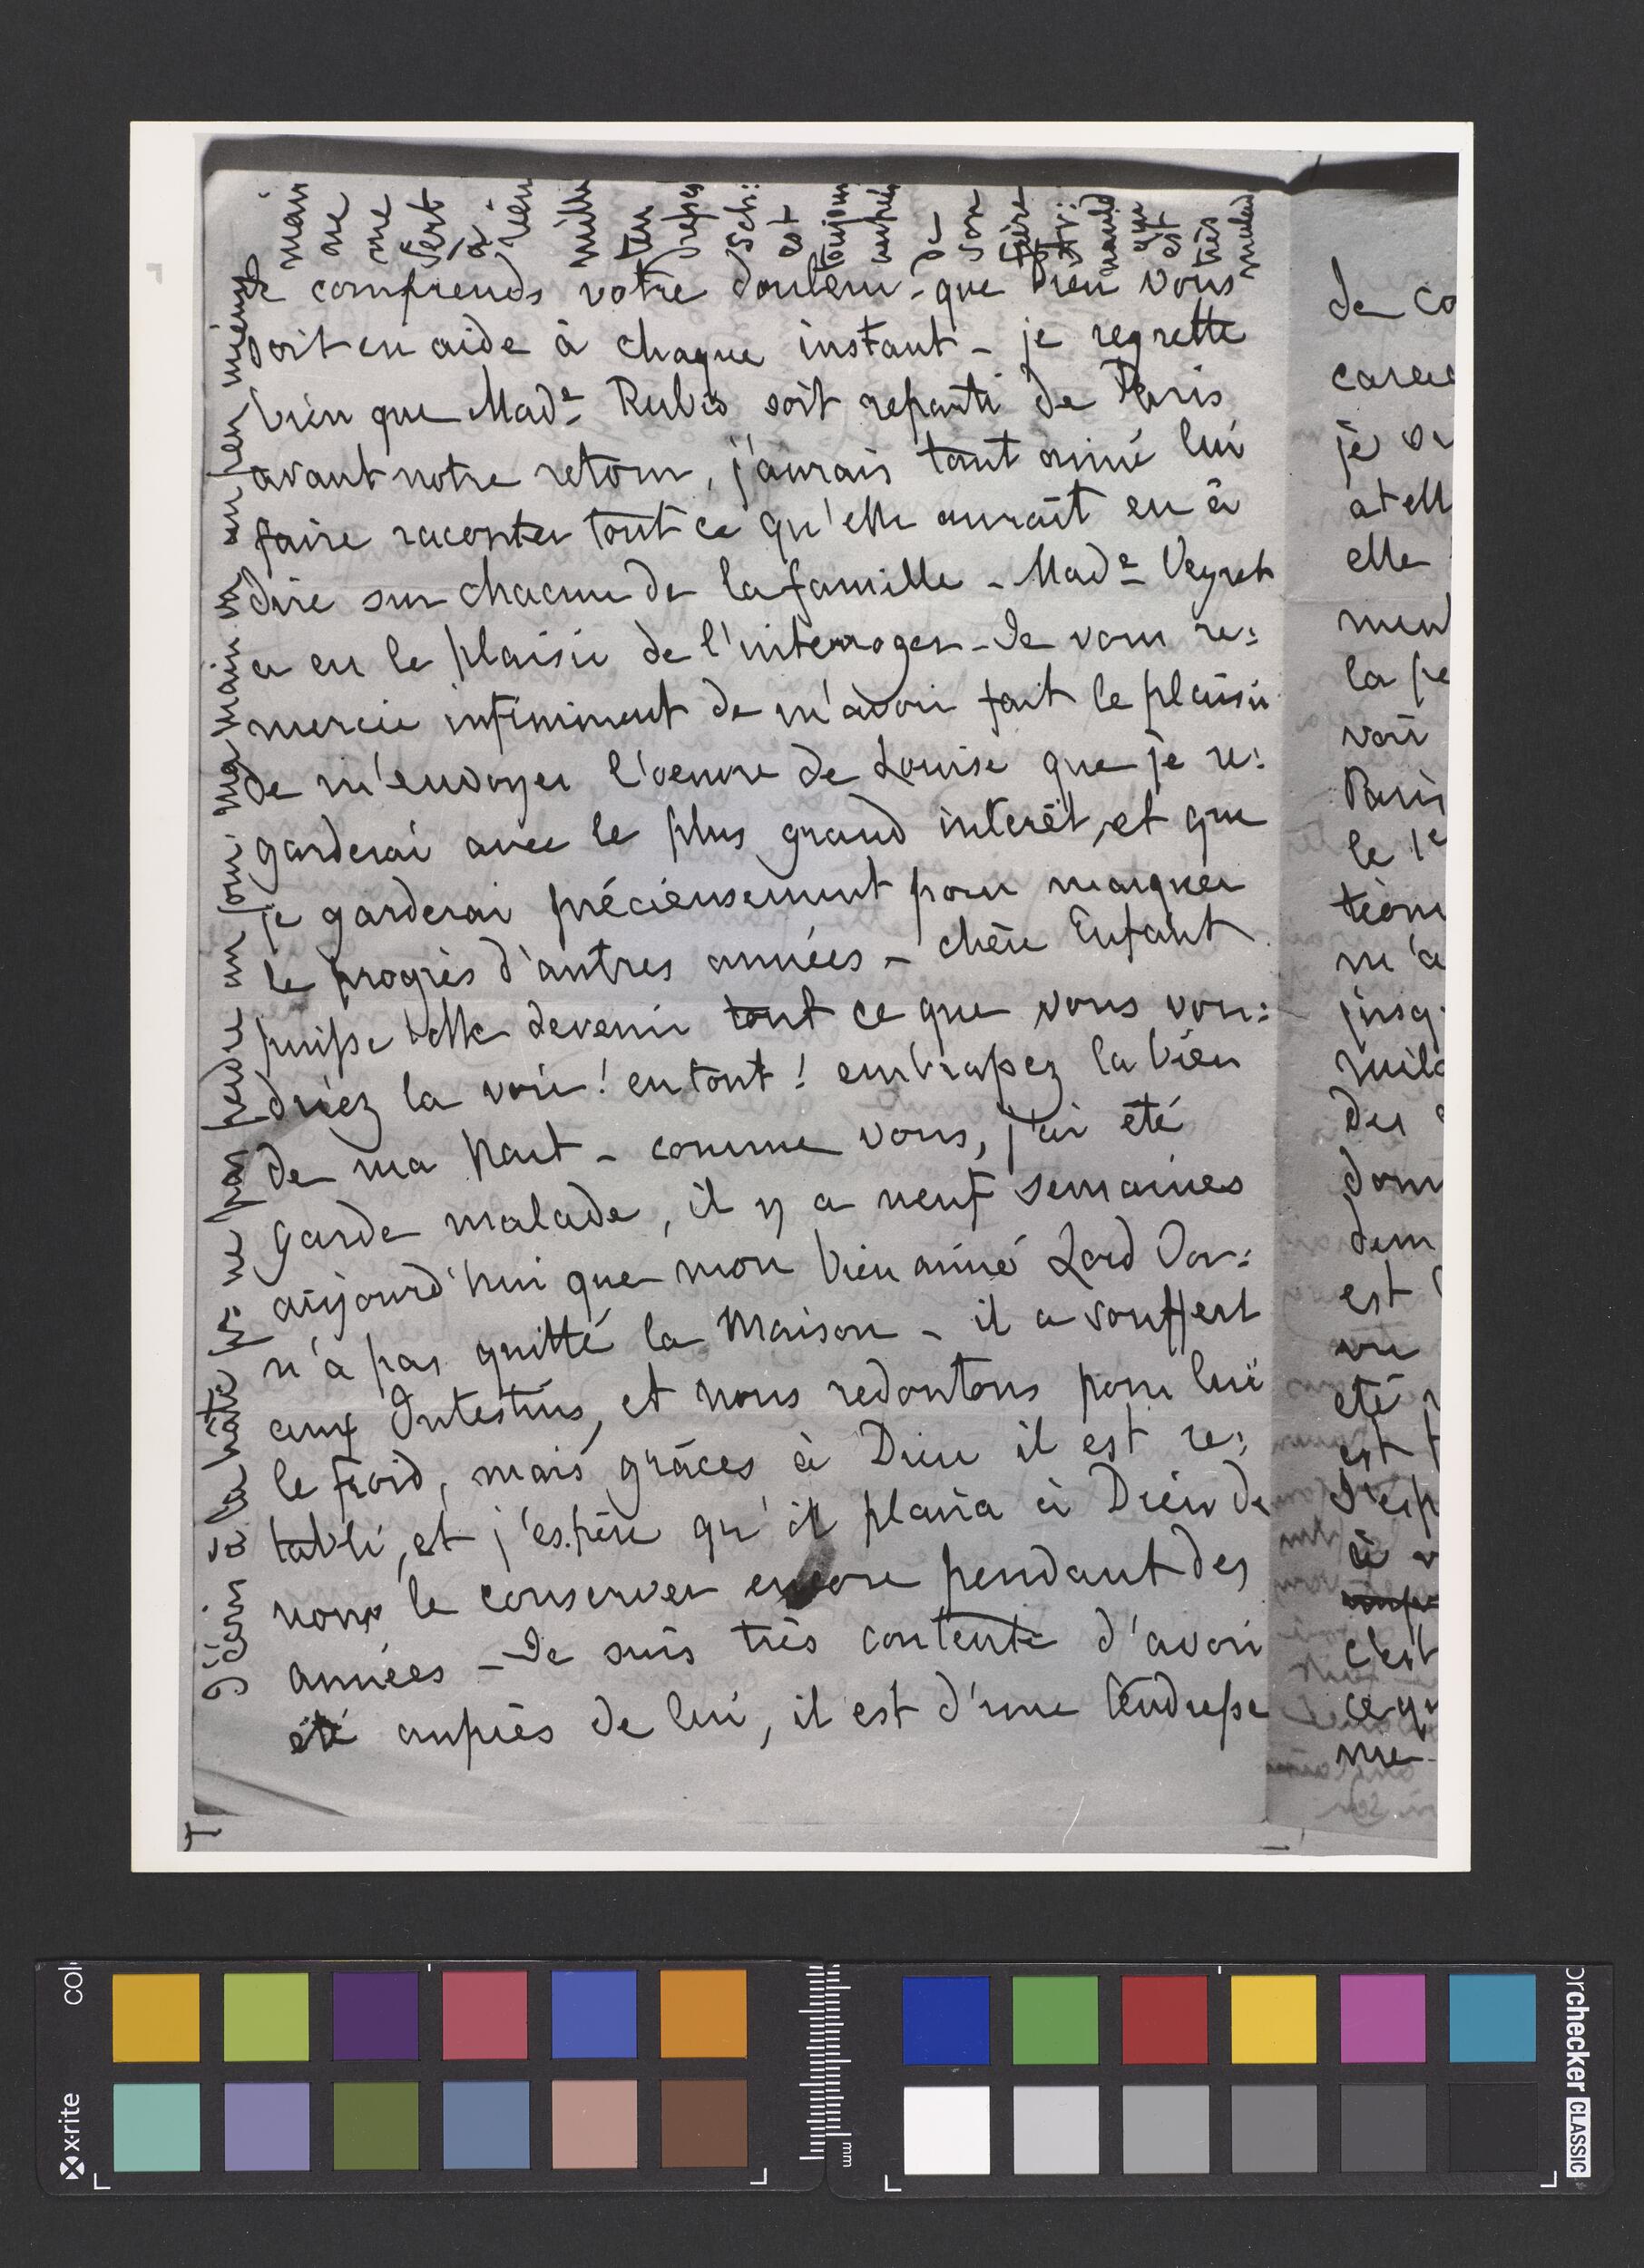 Je comprends votre douleur - que Dieu vous
soit en aide à chaque instant - je regrette
bien que Made Rubio soit repartie de Paris
avant notre retour, j'aurais tant aimé lui
faire raconter tout ce qu'elle aurait eu à
dire sur chacun de la famille - Made Veyret
a eu le plaisir de l'interroger - Je vous re:
mercie infiniment de m'avoir fait le plaisir
de m'envoyer l'oeuvre de Louise que je re:
garderai avec le plus grand interêt, et que
je garderai précieusement pour marquer
le progrès d'autres années - chère Enfant
puisse t'elle devenir tout ce que vous vou:
driez la voir! en tout! embrassez la bien
de ma part - comme vous, j'ai été
garde malade, il y a neuf semaines
aujourd'hui que mon bien aimé Lord Dor:
n'a pas quitté la Maison - il a souffert
aux Intestins, et nous redoutons pour lui
le froid, mais grâces à Dieu il est re:
tabli, et j'espère qu'il plaira à Dieu de
nous le conserver encore pendant des
années - Je suis très contente d'avoir
été auprès de lui, il est d'une tendresse
J'écris à la hâte pr ne pas perdre un jour. ma main va un peu mieux
main
ne
me
sert
à
rien
mille
ten
dresses
Sch:
est
toujours
auprès
de
son
frère
qui
est
très
malad
de co
je
elle
la pe
voir
Paris
le 1e
m'a
des
est
vu
été
est t
à
c'est
ce qu
me
x-rite
colo
orchecker CLASSIC
mm